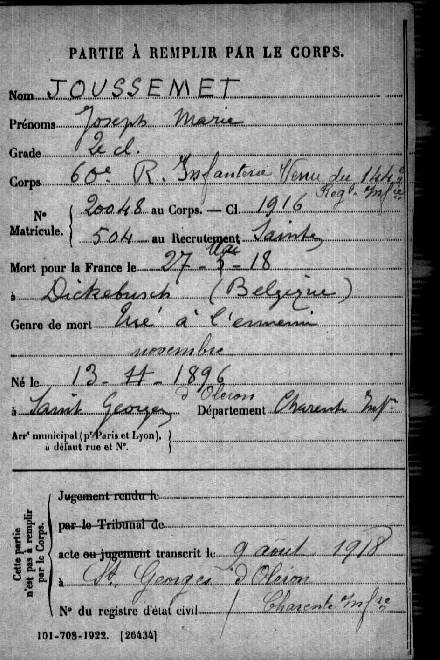 PARTIE À REMPLIR PAR LE CORPS.
Nom JOUSSEMET
Prénoms Joseph Marie
Grade 2e cl.
Corps 60e R. Infanterie Venu du 144e
Reg. Infrie
N° Matricule. { 20048 au Corps. — Cl. 1916
504 au Recrutement Saintes
Mai
Mort pour la France le 27 - 5 - 18
à Dickebusch (Belgique)
Genre de mort Tué à l'ennemi
novembre
Né le 13 - 11 - 1896
à Saint Georges d'Oléron Département Charente Infre
Arrt municipal (pr Paris et Lyon), à défaut rue et N°. }
Cette partie n'est pas à remplir par le Corps.
Jugement rendu le
par le Tribunal de
acte ou jugement transcrit le 9 aout 1918
à St. Georges d'Oléron
N° du registre d'état civil / Charente Infre
101-708-1922. [26434]